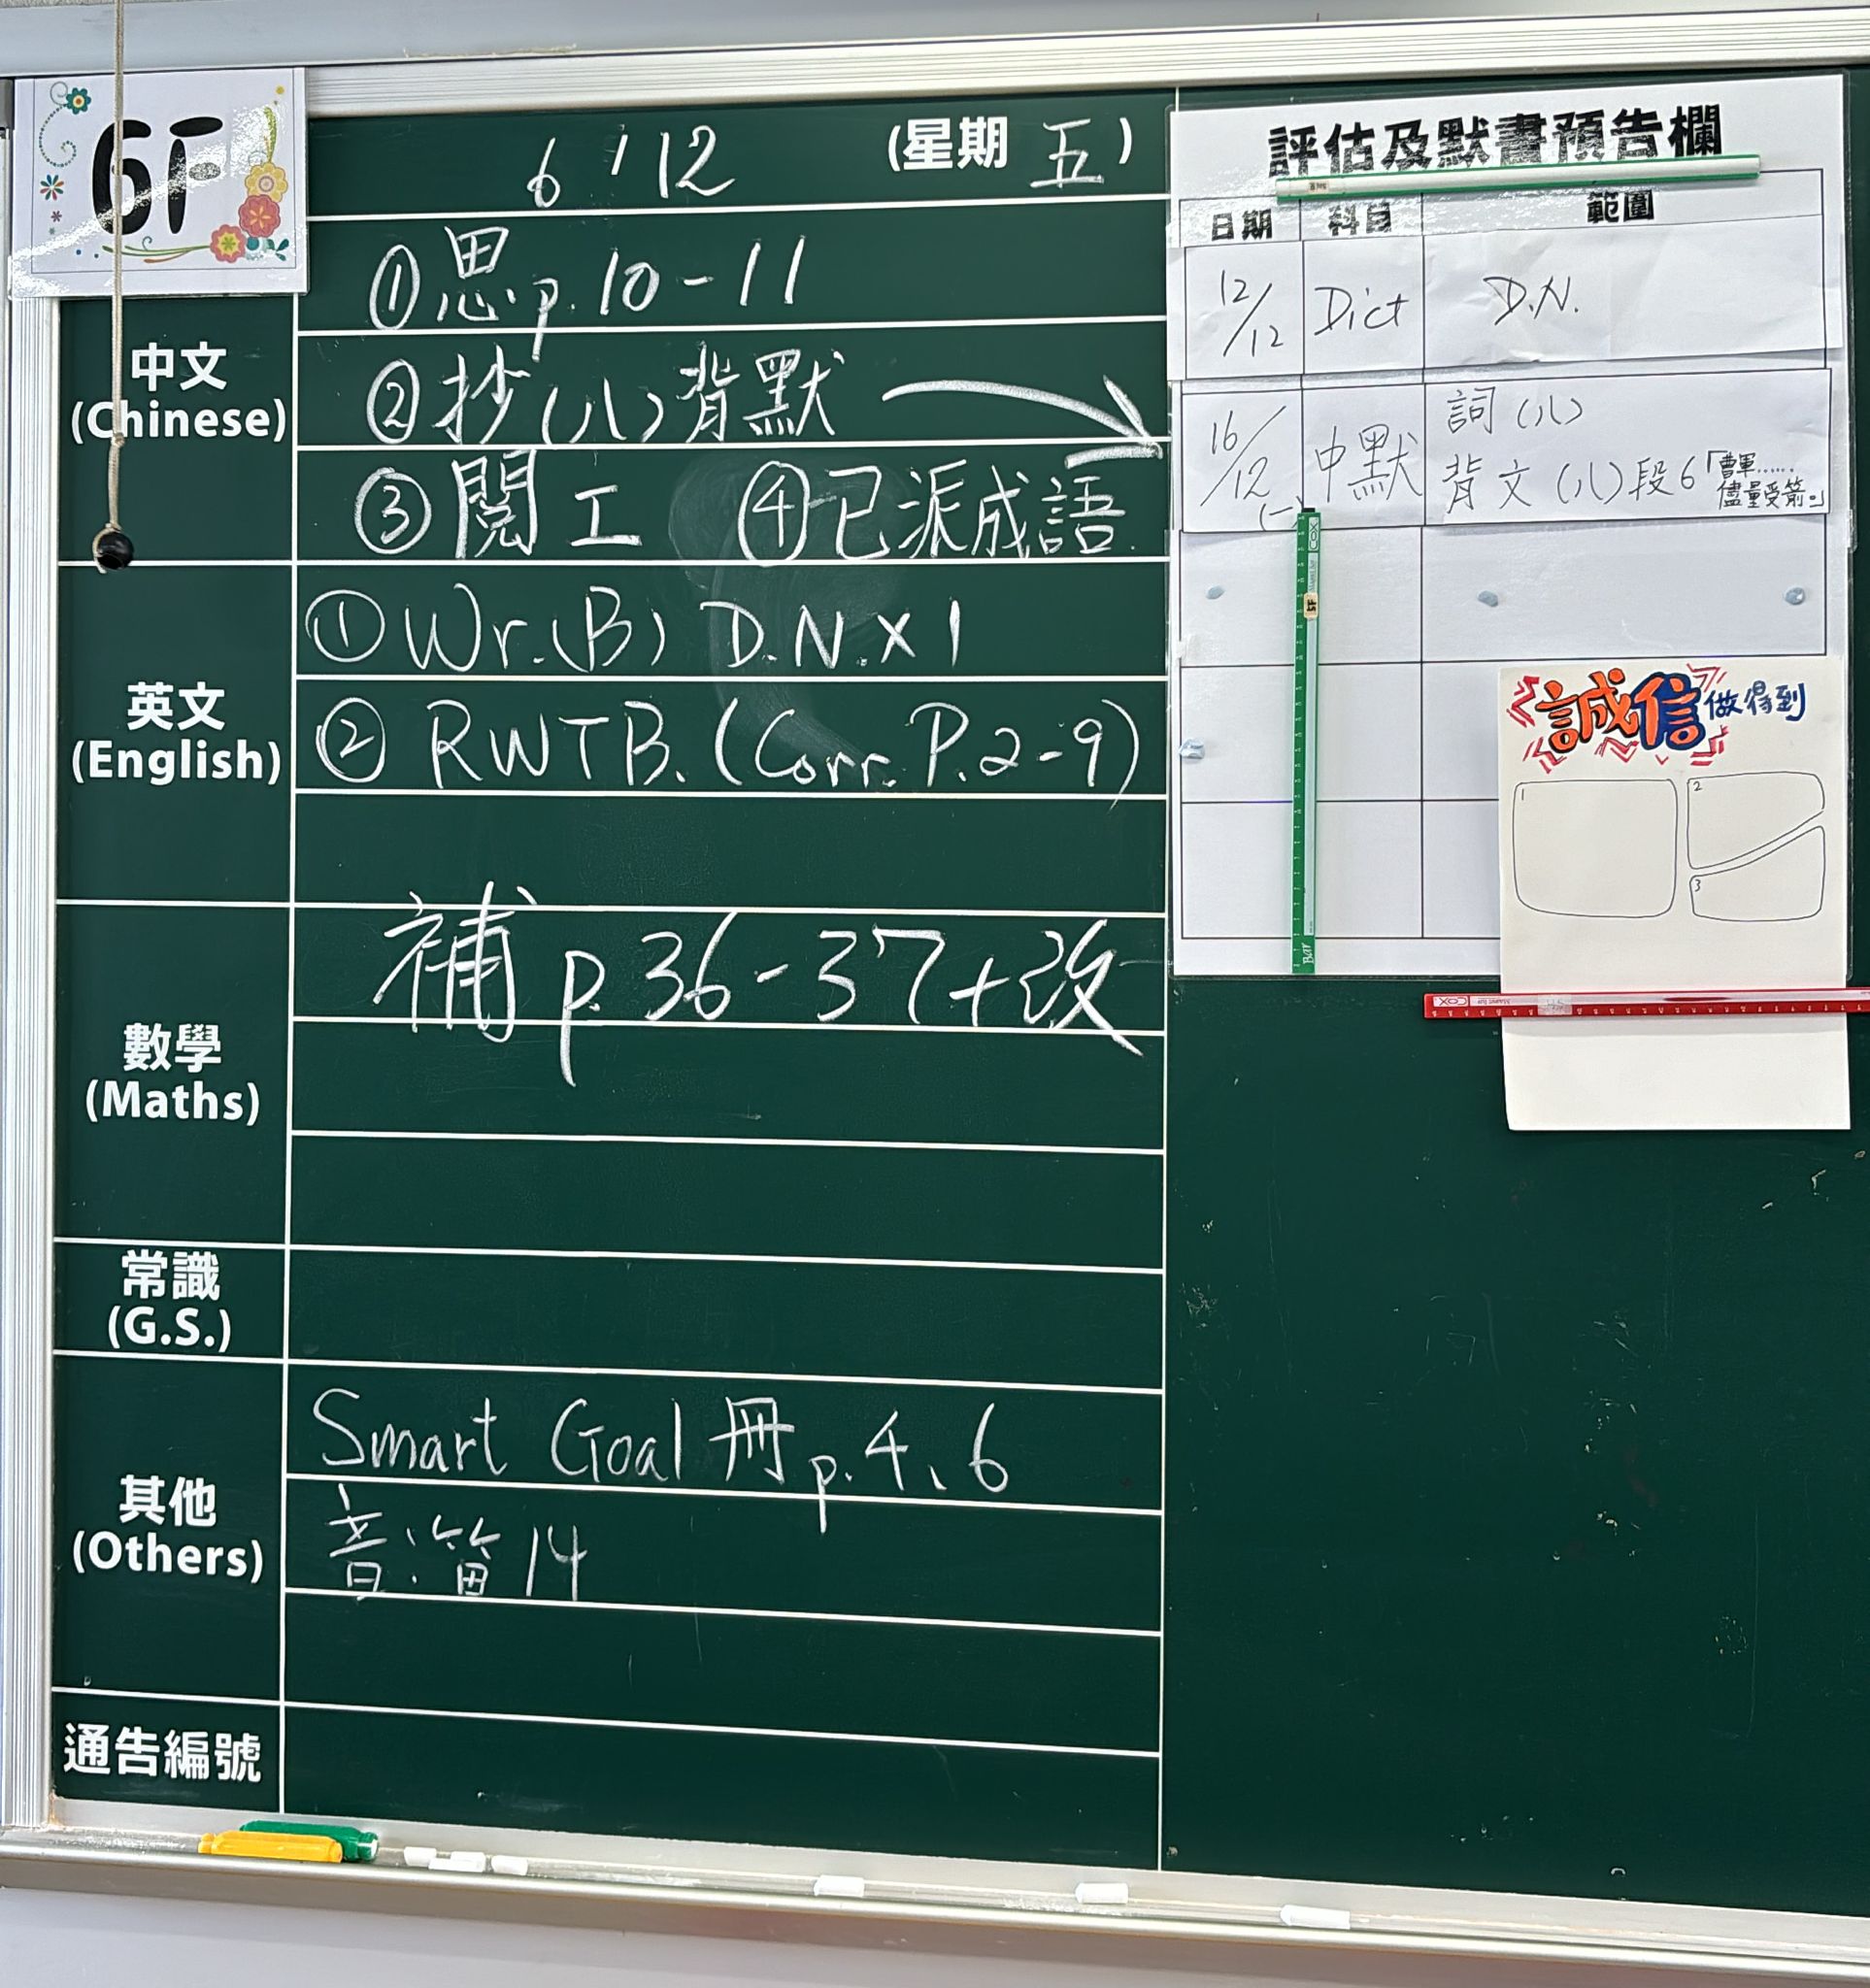 6F
6/12 (星期 五)
中文
(Chinese)
①思.p.10-11
②抄(八)背默
③閱工 ④已派成語
英文
(English)
①Wr.(B) D.N.×1
②RWTB.(Corr. P.2-9)
數學
(Maths)
補 p.36-37+改
常識
(G.S.)
其他
(Others)
Smart Goal 冊 p.4、6
音:笛14
通告編號
評估及默書預告欄
日期 科目 範圍
12/12 Dict D.N.
16/12 中默 詞(八)
背文(八)段6「曹軍……
儘量受箭。」
誠信做得到
1
2
3